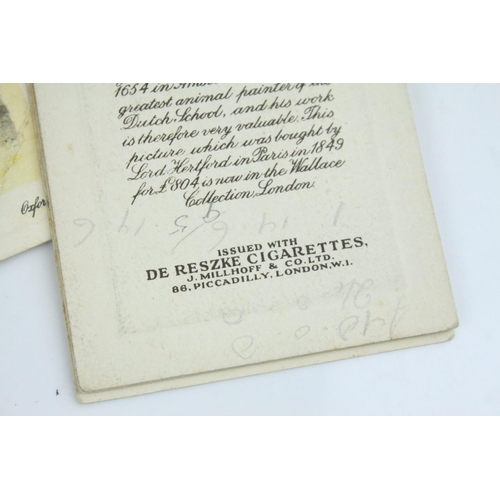 1654 in
greatest animal painter of the
Dutch School, and his work
is therefore very valuable. This
picture, which was bought by
Lord Hertford in Paris in 1849
for £804 is now in the Wallace
Collection, London.
ISSUED WITH
DE RESZKE CIGARETTES,
J. MILLHOFF & CO. LTD.
86, PICCADILLY, LONDON, W.1.